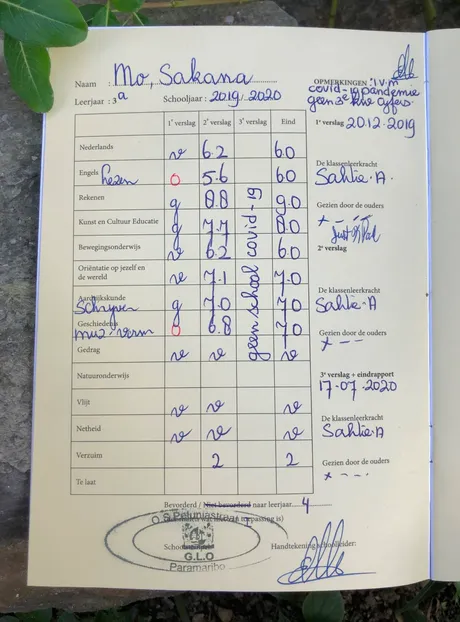 Naam : Mo, Sakana
Leerjaar : 3a Schooljaar : 2019/2020
OPMERKINGEN : i.v.m
covid-19 pandemie
geen 3e kw cijfers.
1e verslag 2e verslag 3e verslag Eind
1e verslag 20.12-2019
Nederlands v 6.2 6.0
De klassenleerkracht
Engels Lezen O 5.6 6.0
Sahtie.A.
Rekenen g 8.8 9.0
Gezien door de ouders
Kunst en Cultuur Educatie g 7.7 8.0
Bewegingsonderwijs v 6.2 6.0
2e verslag
Oriëntatie op jezelf en
de wereld v 7.1 7.0
De klassenleerkracht
Aardrijkskunde
Schrijven g 7.0 7.0
Sahtie.A
Geschiedenis
muz. vorm O 6.8 7.0
Gezien door de ouders
x - - -
geen school covid-19
Gedrag v v v
Natuuronderwijs
3e verslag + eindrapport
17-07-2020
Vlijt v v v
De klassenleerkracht
Netheid v v v
Sahtie.A
Verzuim 2 2
Gezien door de ouders
x - - -
Te laat
Bevorderd / Niet bevorderd naar leerjaar 4
O.S. Petuniastraat 1
toepassing is)
Handtekening schoolleider:
G.L.O
Paramaribo